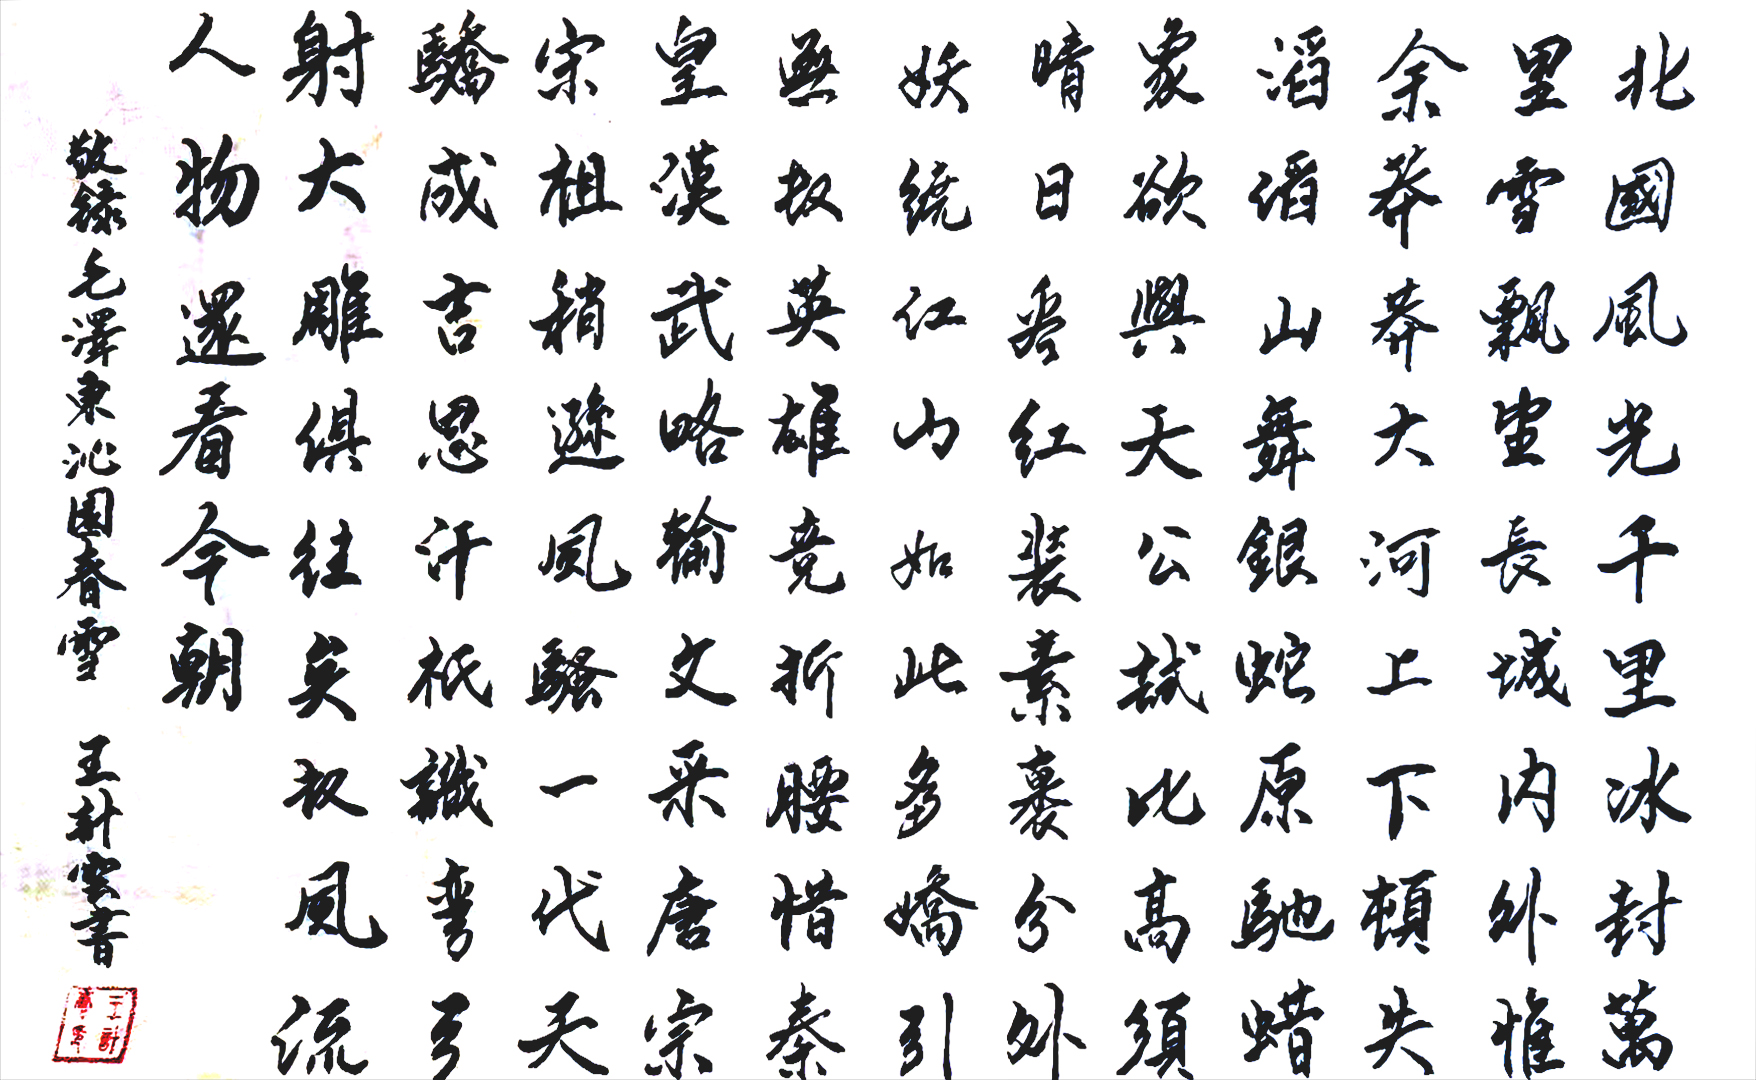 北國風光千里冰封萬
里雪飄望長城內外惟
余莽莽大河上下頓失
滔滔山舞銀蛇原馳蜡
象欲與天公試比高須
晴日看紅裝素裹分外
妖繞江山如此多嬌引
無數英雄竞折腰惜秦
皇漢武略输文采唐宗
宋祖稍遜風騷一代天
驕成吉思汗祇識弯弓
射大雕俱往矣数風流
人物還看今朝
敬錄毛澤東沁園春雪 王計雲書